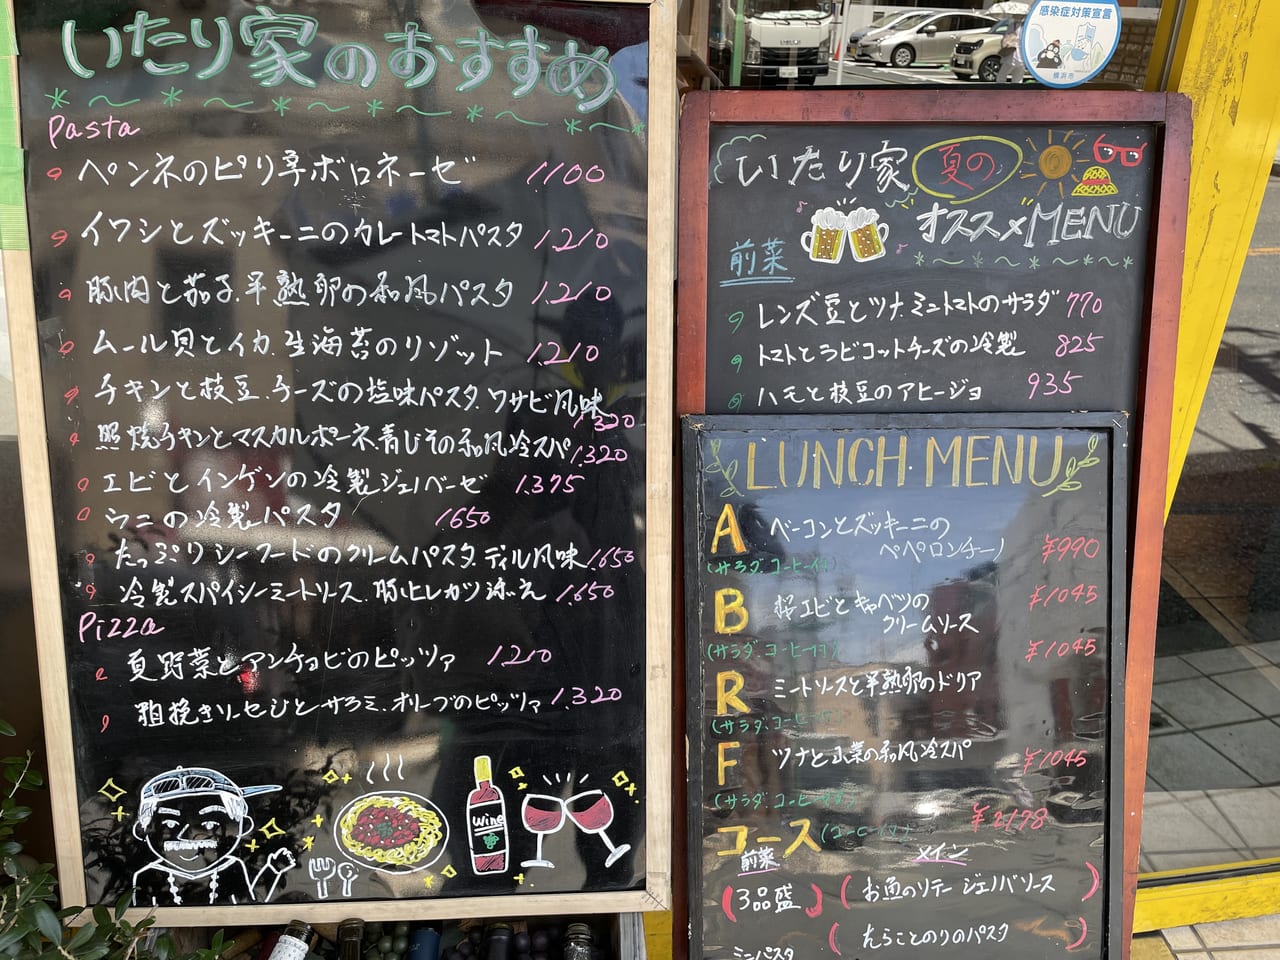 いたり家のおすすめ
Pasta
ペンネのピリ辛ボロネーゼ 1.100
イワシとズッキーニのカレートマトパスタ 1.210
豚肉と茄子、半熟卵の和風パスタ 1.210
ムール貝とイカ、生海苔のリゾット 1.210
チキンと枝豆、チーズの塩味パスタ、ワサビ風味 1.320
照焼チキンとマスカルポーネ、青じその和風冷スパ 1.320
エビとインゲンの冷製ジェノベーゼ 1.375
ウニの冷製パスタ 1650
たっぷりシーフードのクリームパスタ、ディル風味 1.650
冷製スパイシーミートソース、豚ヒレカツ添え 1.650
Pizza
夏野菜とアンチョビのピッツァ 1.210
粗挽きソーセージとサラミ、オリーブのピッツァ 1.320
Wine
感染症対策宣言
横浜市
いたり家 夏の
オススメMENU
前菜
レンズ豆とツナ、ミニトマトのサラダ 770
トマトとラビゴットチーズの冷製 825
ハモと枝豆のアヒージョ 935
LUNCH MENU
A ベーコンとズッキーニの
ペペロンチーノ ¥990
(サラダ、コーヒー付)
B 桜エビとキャベツの
クリームソース ¥1045
(サラダ、コーヒー付)
R ミートソースと半熟卵のドリア ¥1045
(サラダ、コーヒー付)
F ツナと山菜の和風冷スパ ¥1045
(サラダ、コーヒー付)
コース (コーヒー付) ¥2178
前菜 メイン
(3品盛) (お魚のソテー ジェノバソース)
(たらことのりのパスタ)
ミニパスタ